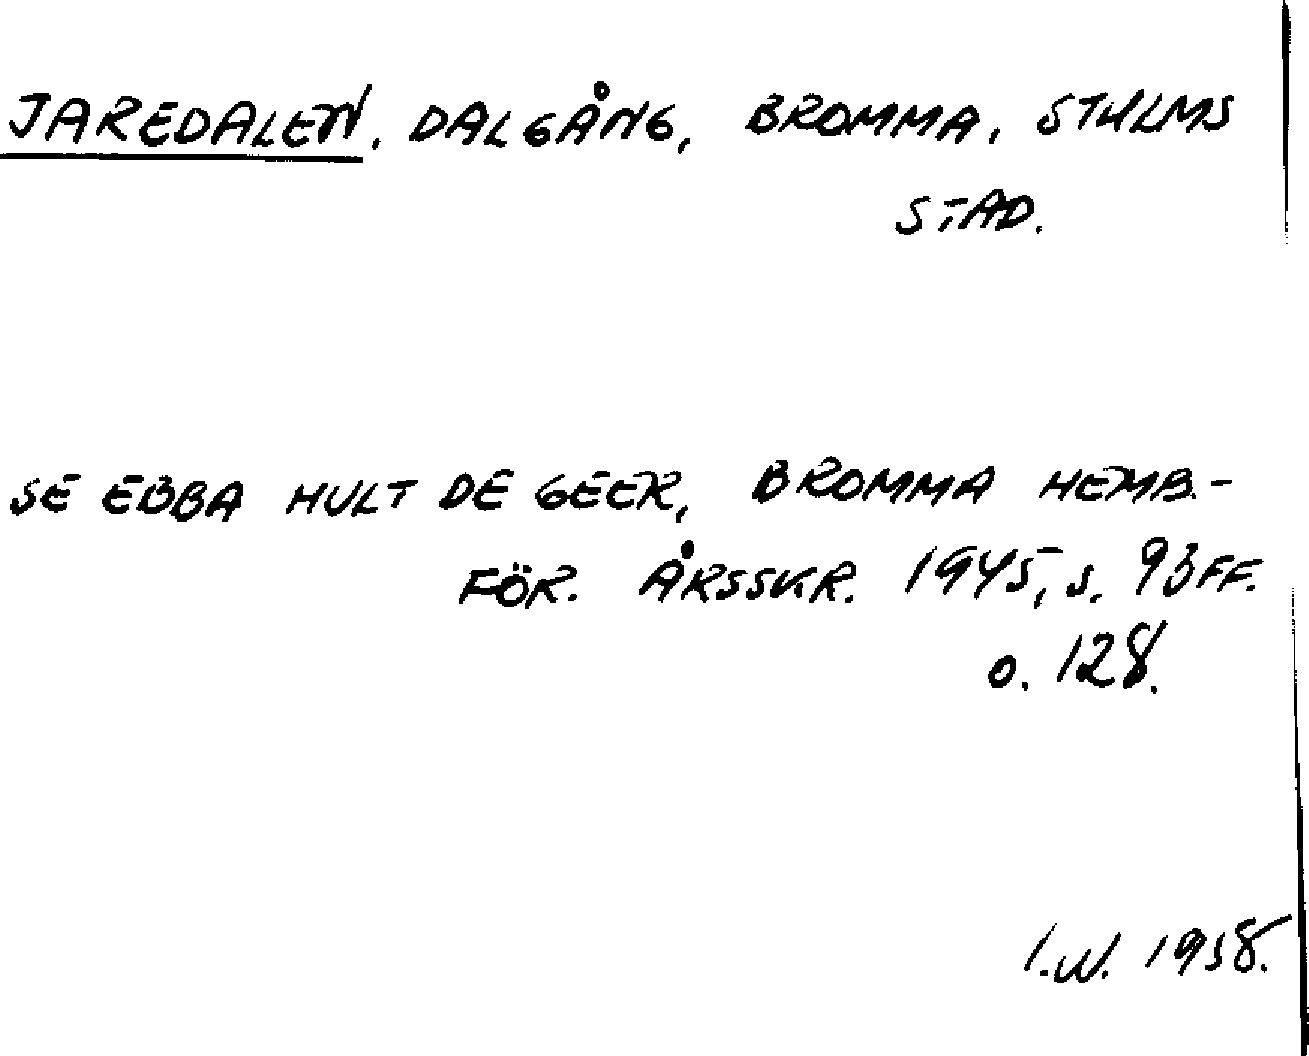 JAREDALEN, DALGÅNG, BROMMA, STHLMS
STAD.
SE EBBA HULT DE GEER, BROMMA HEMB.-
FÖR. ÅRSSKR. 1945, s. 93FF.
o. 128.
I.W. 1958.